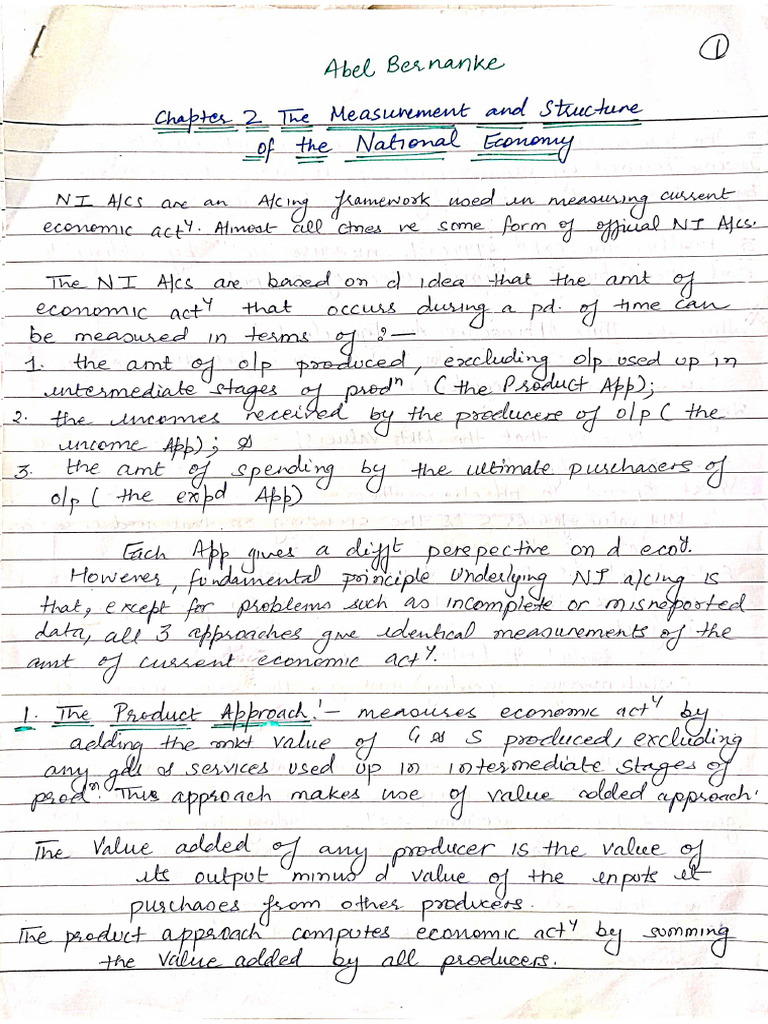 1
Abel Bernanke
Chapter 2 The Measurement and Structure
of the National Economy
NI A/CS are an A/cing framework used in measuring current
economic actʸ. Almost all ctries ve some form of official NI A/cs.
The NI A/cs are based on d idea that the amt of
economic actʸ that occurs during a pd. of time can
be measured in terms of :-
1. the amt of o/p produced, excluding o/p used up in
intermediate stages of prodⁿ (the Product App);
2. the incomes received by the producers of o/p (the
income App); &
3. the amt of spending by the ultimate purchasers of
o/p (the expd App)
Each App gives a difft perspective on d ecoʸ.
However, fundamental principle underlying NI a/cing is
that, except for problems such as incomplete or misreported
data, all 3 approaches give identical measurements of the
amt of current economic actʸ.
1. The Product Approach :- measures economic actʸ by
adding the mkt value of G & S produced, excluding
any gds & services used up in intermediate stages of
prodⁿ. This approach makes use of value added approach.
The Value added of any producer is the value of
its output minus d value of the inputs it
purchases from other producers.
The product approach computes economic actʸ by summing
the value added by all producers.